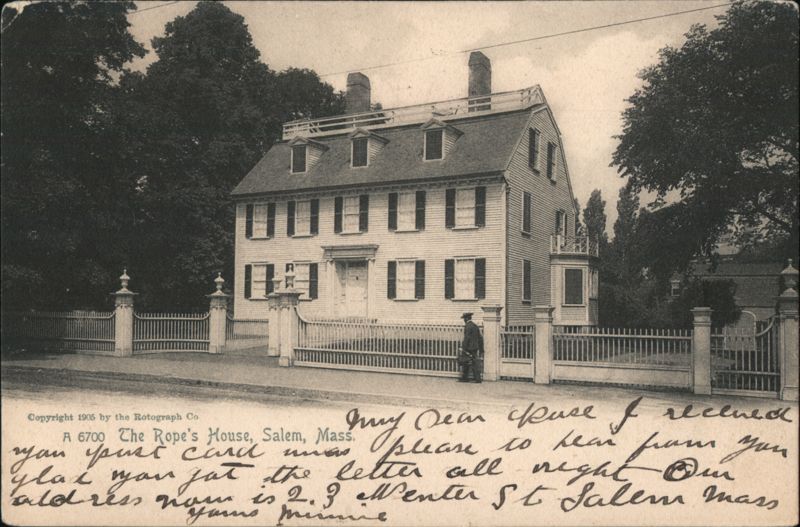 Copyright 1905 by the Rotograph Co
A 6700 The Rope's House, Salem, Mass.
My Dear I received
you post card was please to hear from you
glad you got the letter all right Our
address now is 2.3 Winter St Salem Mass
yours Minnie